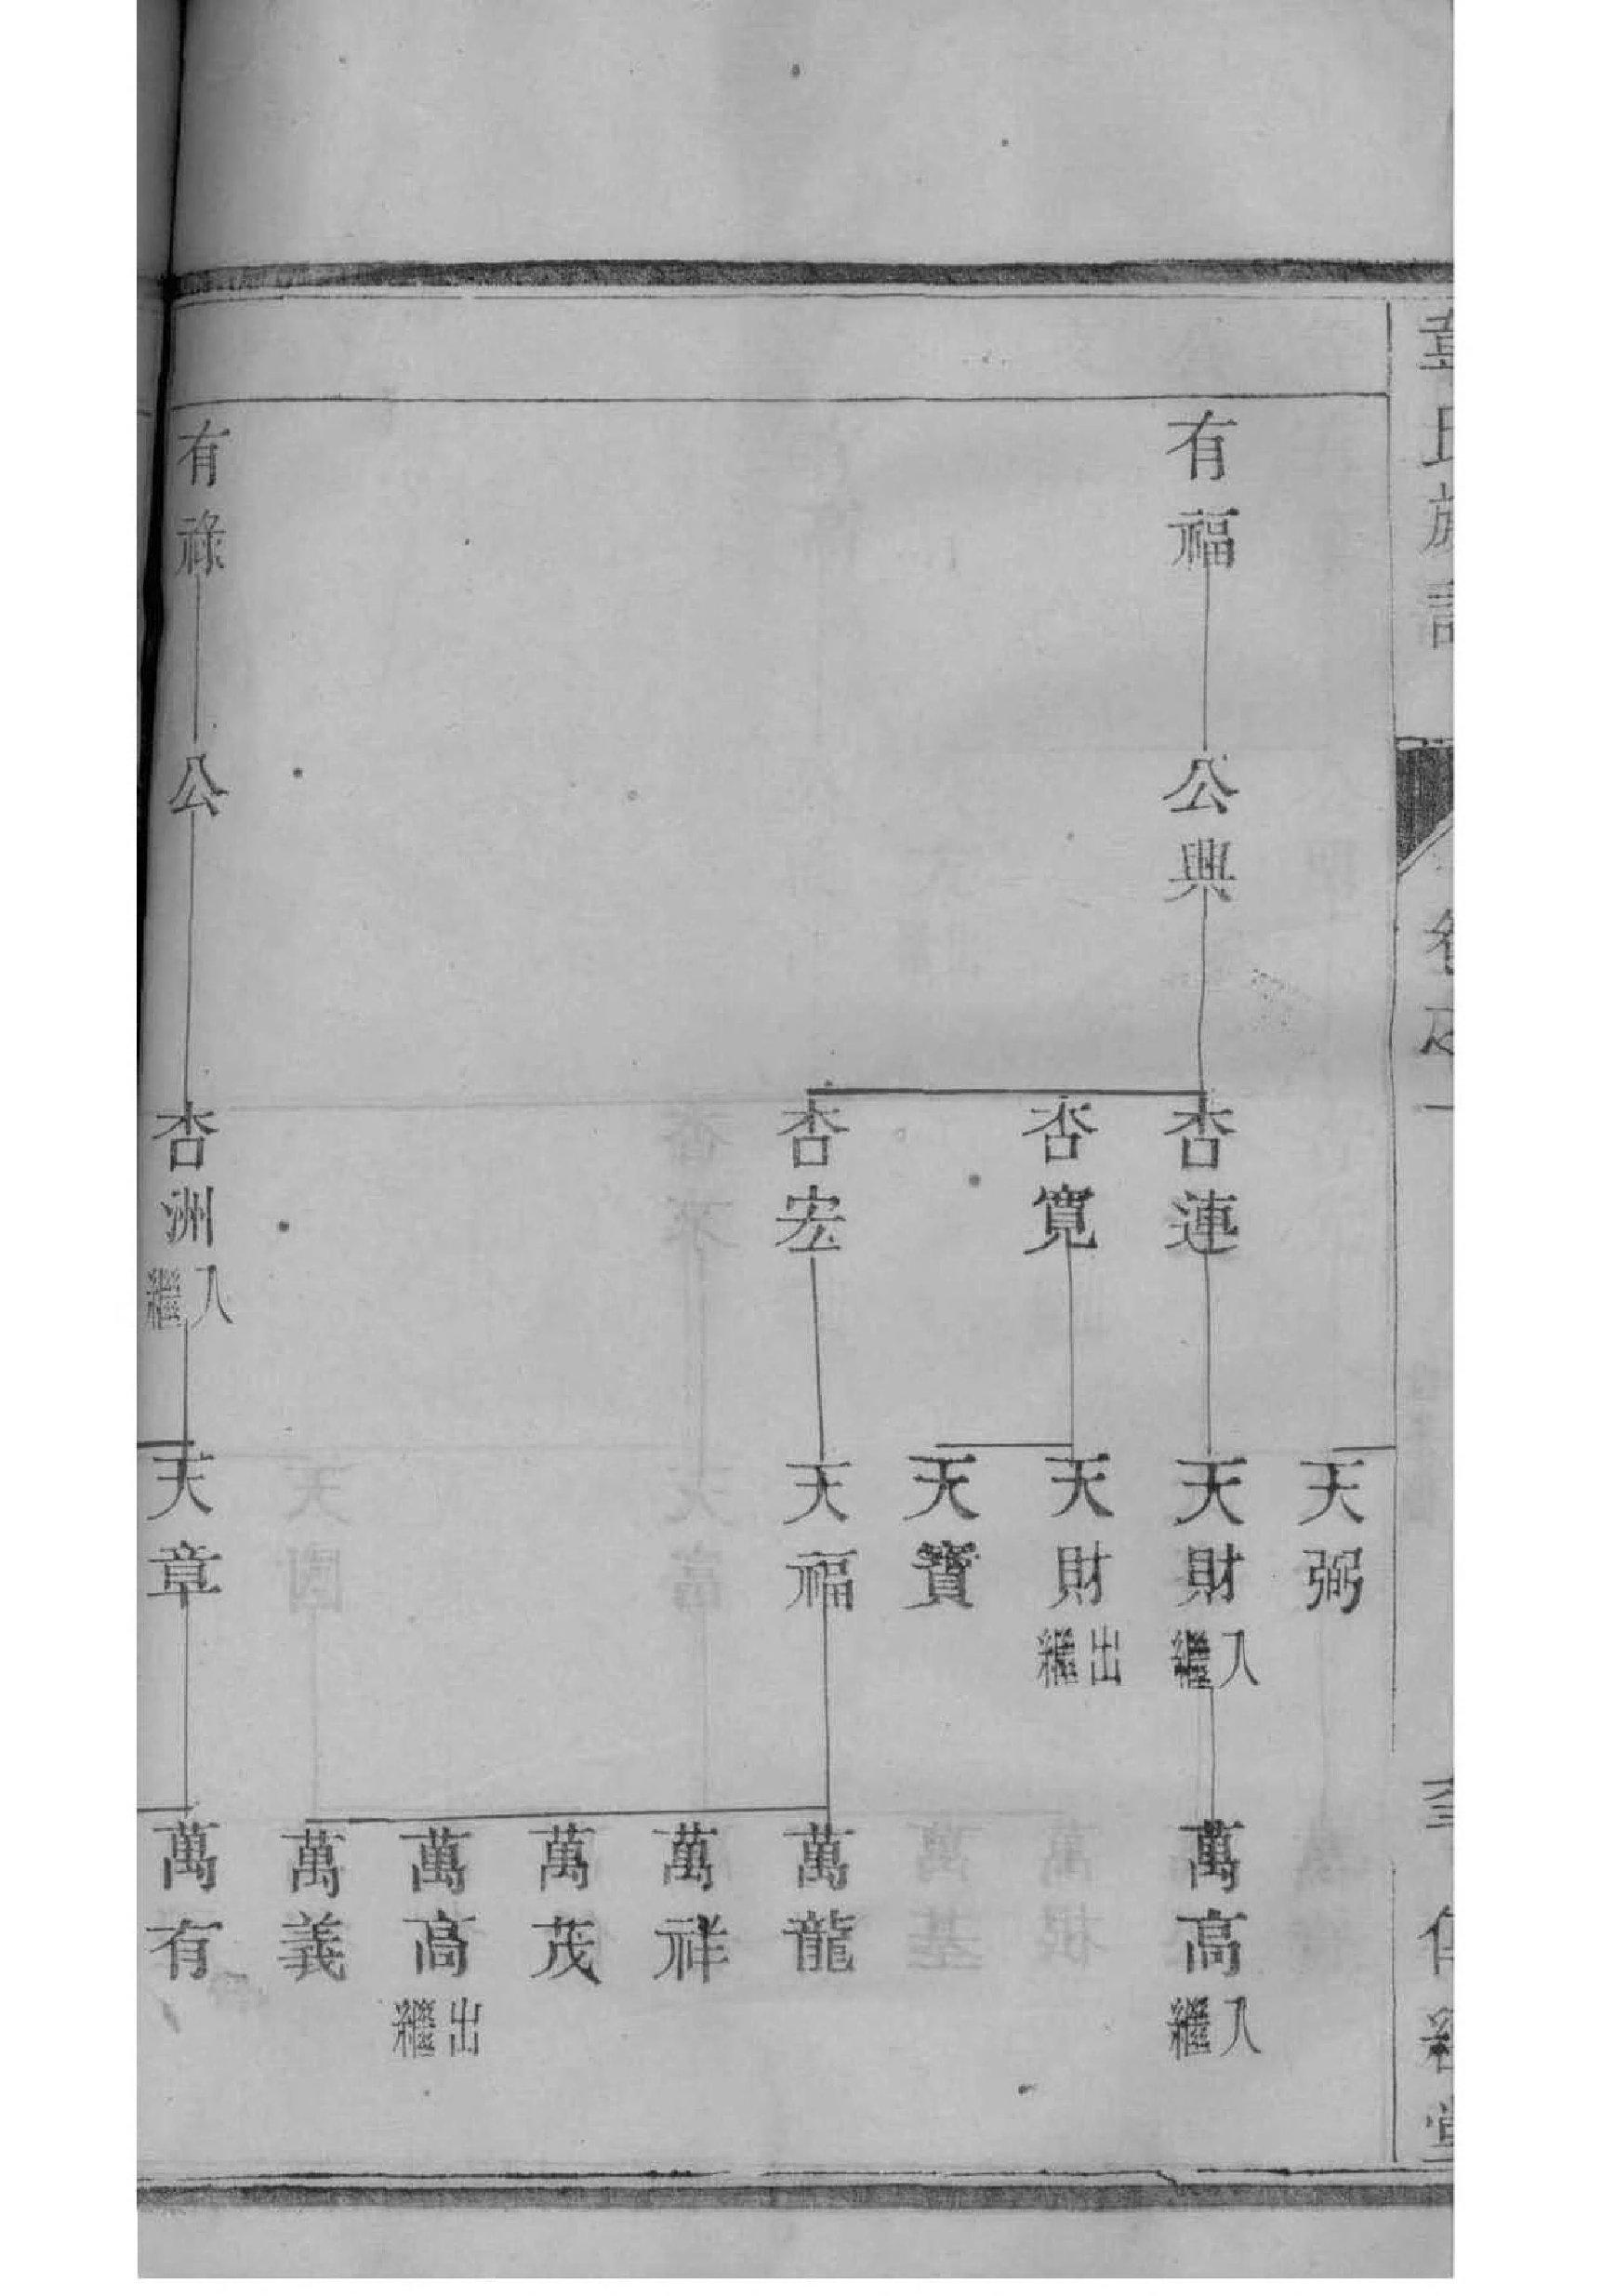 氏族譜
卷之一
有福
公典
杏連
杏寬
杏宏
天弼
天財入繼
天財出繼
天寶
天福
萬高入繼
萬龍
萬祥
萬茂
萬高出繼
萬義
有祿
公
杏洲入繼
天章
萬有